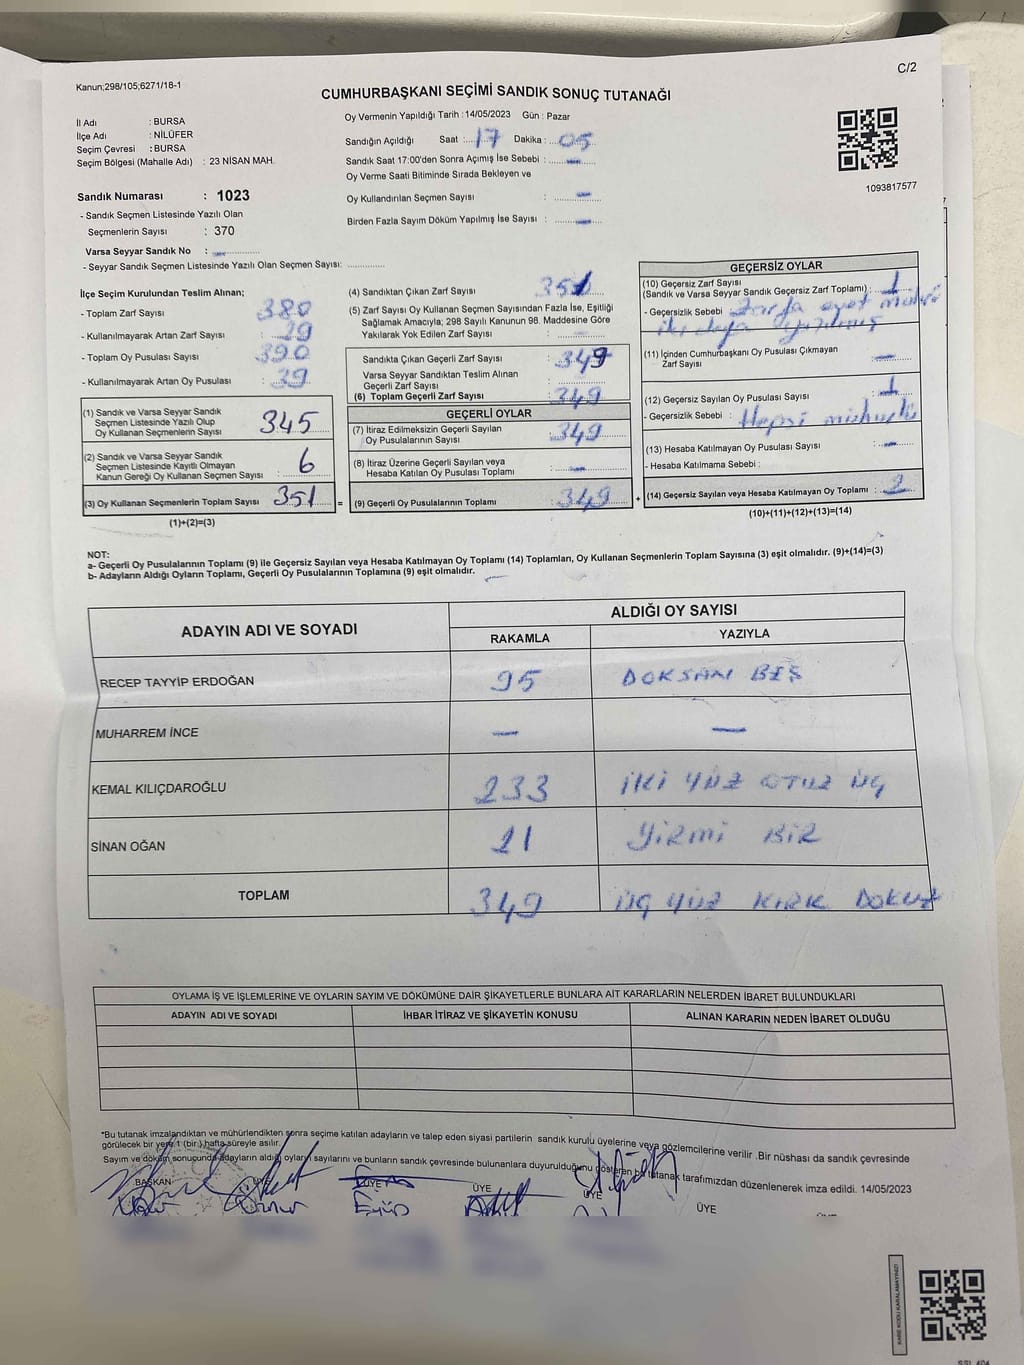 C/2
Kanun;298/105;6271/18-1
CUMHURBAŞKANI SEÇİMİ SANDIK SONUÇ TUTANAĞI
İl Adı : BURSA
İlçe Adı : NİLÜFER
Seçim Çevresi : BURSA
Seçim Bölgesi (Mahalle Adı) : 23 NİSAN MAH.
Sandık Numarası : 1023
- Sandık Seçmen Listesinde Yazılı Olan
Seçmenlerin Sayısı : 370
Varsa Seyyar Sandık No : —
- Seyyar Sandık Seçmen Listesinde Yazılı Olan Seçmen Sayısı: ............
Oy Vermenin Yapıldığı Tarih : 14/05/2023 Gün : Pazar
Sandığın Açıldığı Saat :... 17 Dakika :... 05
Sandık Saat 17:00'den Sonra Açımış İse Sebebi : —
Oy Verme Saati Bitiminde Sırada Bekleyen ve
Oy Kullandırılan Seçmen Sayısı : —
Birden Fazla Sayım Döküm Yapılmış İse Sayısı : —
1093817577
İlçe Seçim Kurulundan Teslim Alınan;
- Toplam Zarf Sayısı : 380
- Kullanılmayarak Artan Zarf Sayısı : 29
- Toplam Oy Pusulası Sayısı : 390
- Kullanılmayarak Artan Oy Pusulası : 39
(1) Sandık ve Varsa Seyyar Sandık
Seçmen Listesinde Yazılı Olup
Oy Kullanan Seçmenlerin Sayısı : 345
(2) Sandık ve Varsa Seyyar Sandık
Seçmen Listesinde Kayıtlı Olmayan
Kanun Gereği Oy Kullanan Seçmen Sayısı : 6
(3) Oy Kullanan Seçmenlerin Toplam Sayısı : 351 =
(1)+(2)=(3)
(4) Sandıktan Çıkan Zarf Sayısı : 351
(5) Zarf Sayısı Oy Kullanan Seçmen Sayısından Fazla İse, Eşitliği
Sağlamak Amacıyla; 298 Sayılı Kanunun 98. Maddesine Göre
Yakılarak Yok Edilen Zarf Sayısı : —
Sandıkta Çıkan Geçerli Zarf Sayısı : 349
Varsa Seyyar Sandıktan Teslim Alınan
Geçerli Zarf Sayısı :
(6) Toplam Geçerli Zarf Sayısı : 349
GEÇERLİ OYLAR
(7) İtiraz Edilmeksizin Geçerli Sayılan
Oy Pusulalarının Sayısı : 349
(8) İtiraz Üzerine Geçerli Sayılan veya
Hesaba Katılan Oy Pusulası Toplamı : —
(9) Geçerli Oy Pusulalarının Toplamı : 349 +
GEÇERSİZ OYLAR
(10) Geçersiz Zarf Sayısı
(Sandık ve Varsa Seyyar Sandık Geçersiz Zarf Toplamı) : 1
- Geçersizlik Sebebi : Zarfa evet mührü
iki defa
(11) İçinden Cumhurbaşkanı Oy Pusulası Çıkmayan
Zarf Sayısı : —
(12) Geçersiz Sayılan Oy Pusulası Sayısı : 1
- Geçersizlik Sebebi : Hepsi mühürlü
(13) Hesaba Katılmayan Oy Pusulası Sayısı : —
- Hesaba Katılmama Sebebi :
(14) Geçersiz Sayılan veya Hesaba Katılmayan Oy Toplamı : 2
(10)+(11)+(12)+(13)=(14)
NOT:
a- Geçerli Oy Pusulalarının Toplamı (9) ile Geçersiz Sayılan veya Hesaba Katılmayan Oy Toplamı (14) Toplamları, Oy Kullanan Seçmenlerin Toplam Sayısına (3) eşit olmalıdır. (9)+(14)=(3)
b- Adayların Aldığı Oyların Toplamı, Geçerli Oy Pusulalarının Toplamına (9) eşit olmalıdır.
ADAYIN ADI VE SOYADI ALDIĞI OY SAYISI
RAKAMLA YAZIYLA
RECEP TAYYİP ERDOĞAN 95 DOKSAN BEŞ
MUHARREM İNCE — —
KEMAL KILIÇDAROĞLU 233 İKİ YÜZ OTUZ ÜÇ
SİNAN OĞAN 21 YİRMİ BİR
TOPLAM 349 ÜÇ YÜZ KIRK DOKUZ
OYLAMA İŞ VE İŞLEMLERİNE VE OYLARIN SAYIM VE DÖKÜMÜNE DAİR ŞİKAYETLERLE BUNLARA AİT KARARLARIN NELERDEN İBARET BULUNDUKLARI
ADAYIN ADI VE SOYADI İHBAR İTİRAZ VE ŞİKAYETİN KONUSU ALINAN KARARIN NEDEN İBARET OLDUĞU
*Bu tutanak imzalandıktan ve mühürlendikten sonra seçime katılan adayların ve talep eden siyasi partilerin sandık kurulu üyelerine veya gözlemcilerine verilir .Bir nüshası da sandık çevresinde
görülecek bir yere 1 (bir) hafta süreyle asılır.
Sayım ve döküm sonucunda adayların aldığı oyların sayılarını ve bunların sandık çevresinde bulunanlara duyurulduğunu gösteren bu tutanak tarafımızdan düzenlenerek imza edildi. 14/05/2023
BAŞKAN ÜYE ÜYE ÜYE ÜYE ÜYE
KARE KODU KARALAMAYINIZ!